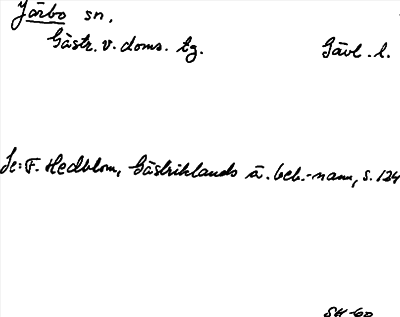 Järbo sn.
Gästr. v. doms. tg.
Gävl. l.
Se: F. Hedblom, Gästriklands ä. beb.-namn, s. 124